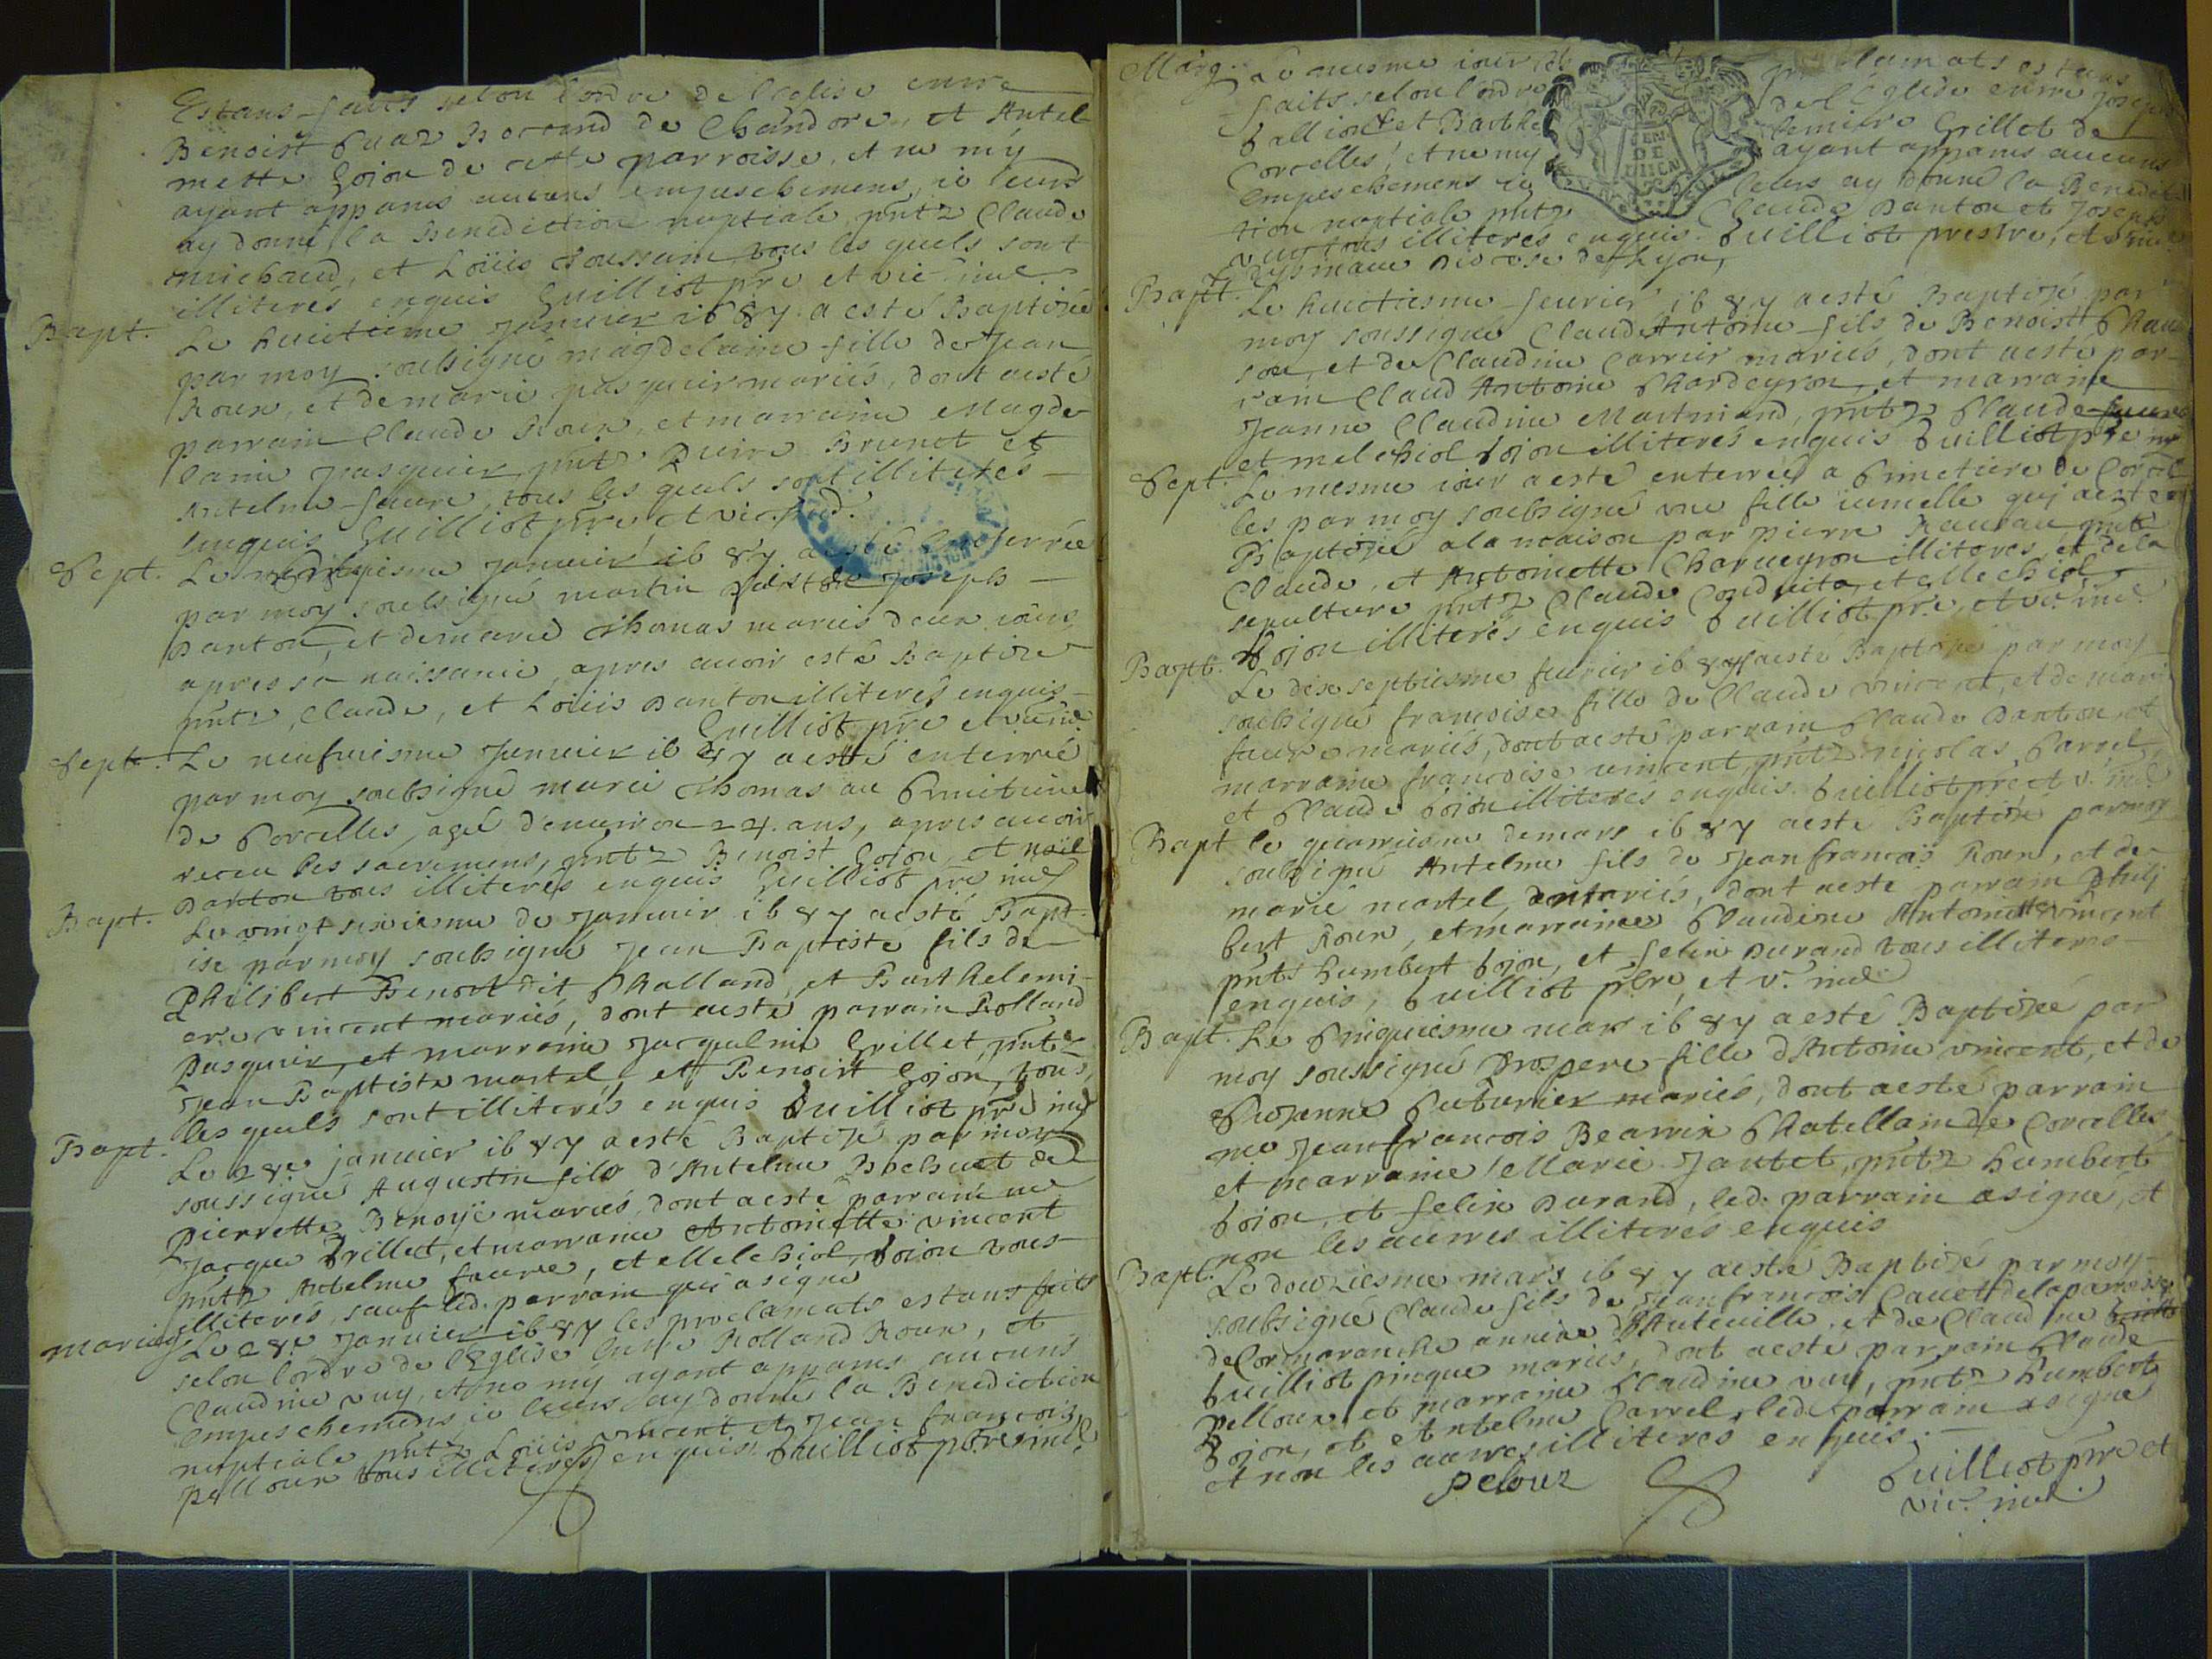 Estans faits selon l'ordre de l'Eglise entre
Benoist Guaz Bertrand de Chandore, et Antel-
mette Goion de cette parroisse, et ne my
ayant apparus aucuns empeschemens, ie leurs
ay donné la Benediction nuptiale pntz Claude
michaud, et Loüis Joussain tous les quels sont
illiterés enquis Guilliot pre et vic. ind.
Bapt. Le huictieme Januier 1687 a esté Baptizée
par moy soubsigné magdelaine fille de Jean
Roux, et de marie pasquier mariés, dont a esté
parrain Claude Roux, et marraine Magde-
laine pasquier pntz Pierre Brunet et
Antelme faure, tous les quels sont illiterés
enquis Guilliot pre, et vic. ind.
Sept. Le Januier 1687 a esté enterré
par moy soubsigné martin fils de Joseph
Danton, et de marie Thomas mariés deux iours
apres sa naissance, apres auoir esté Baptizé
pntz, Claude, et Loüis Danton illiterés enquis
Guilliot pre et vic. ind.
Sept. Le neufuiesme Januier 1687 a esté enterrée
par moy soubsigné marie Thomas au Cimetiere
de Corcelles, agée d'enuiron 24. ans, apres auoir
receu les sacremens, pntz Benoist Goion, et noël
Danton tous illiterés enquis Guilliot pre ind.
Bapt. Le vingt sixiesme de Januier 1687 a esté Bapt-
isé par moy soubsigné Jean Baptiste fils de
Philibert Benoit dit Challand, et Barthelemi-
ere vincent mariés, dont a esté parrain Rolland
Pasquier, et marraine Jacqueline Grillet, pntz
Jean Baptiste martel, et Benoist Goion, tous
les quels sont illiterés enquis Guilliot pre ind.
Bapt. Le 28e januier 1687 a esté Baptizé par moy
soussigné Augustin fils d'Antelme Bochuet et de
pierrette Benoye mariés, dont a esté parrain me
Jacque Grillet, et marraine Antoinette vincent
pntz Antelme faure, et Melchiol Goion tous
illiterés, sauf led. parrain qui a signé
mariag Le 28e Januier 1687 les proclamats estans faits
selon l'ordre de l'Eglise entre Rolland Roux, et
Claudine vuy, et ne my ayant apparus aucuns
empeschemens, ie leurs ay donné la Benediction
nuptiale pntz Loüis vincent et Jean francois
pelloux tous illiterés enquis. Guilliot pbre ind.
Mariag. Le mesme iour les proclamats estans
faits selon l'ordre de l'Eglise entre Joseph
Gallion et Barthelemiere Grillet de
Corcelles, et ne my ayant apparus aucuns
empeschemens ie leurs ay donné la Benedic-
tion nuptiale pntz Claude Danton et Joseph
tous illiterés enquis. Guilliot prestre, et vic.
Diocese de Lyon,
Bapt. Le huictiesme feurier 1687 a esté Baptizé par
moy soussigné Claud Antoine fils de Benoist Chau-
son, et de Claudine Carrier mariés, dont a esté par-
rain Claud Antoine Chardeyron, et marraine
Jeanne Claudine Martinand, pntz Claude faure
et melchiol Goion illiterés enquis Guilliot pre ind
Sept. Le mesme iour a esté enterrée a Cimetiere de Corcel-
les par moy soubsigné une fille iumelle qui a esté
Baptizée a la maison par pierre Rauau pntz
Claude, et Antoinette Charueyron illiteres, et de la
sepulture pntz Claude Conduita, et Melchiol
Goion illiterés enquis Guilliot pre, et vic. ind
Bapt. Le dix septiesme feurier 1687 a esté Baptizée par moy
soubsigné francoise fille de Claude vincent, et de marie
faure mariés, dont a esté parrain Claude Danton, et
marraine francoise vincent, pntz nicolas Carrel,
et Claude Goion illiteres enquis. Guilliot pre et v. ind
Bapt le quatriesme de mars 1687 a esté Baptizé par moy
soubsigné Antelme fils de Jean francois Roux, et de
marie martel, mariés, dont a esté parrain Phili
bert Roux, et marraine Claudine Antoinette vincent
pnts humbert Goion, et felix Durand tous illiterés
enquis, Guilliot pbre, et v. ind
Bapt. Le Cinquiesme mars 1687 a esté Baptizée par
moy soussigné Prospere fille d'Antoine vincent, et de
Suzanne Couturier mariés, dont a esté parrain
me Jean francois Bearrix Chatellain de Corcelles
et marraine Marie Jantet, pntz humbert
Goion, et felix Durand, led. parrain a signé, et
non les autres illiterés enquis
Bapt. Le douziesme mars 1687 a esté Baptizé par moy
soubsigné Claude fils de Jean francois Cauet de la parroisse
de Cormaranche annexe d'Hauteuille, et de Claudine
Guilliot pinque mariés, dont a esté parrain Claude
pelloux, et marraine Claudine vuy, pntz humbert
Goion, et Antelme Carrel, led. parrain a signé
et non les autres illiterés enquis.
Peloux
Guilliot pre et
vic. ind.